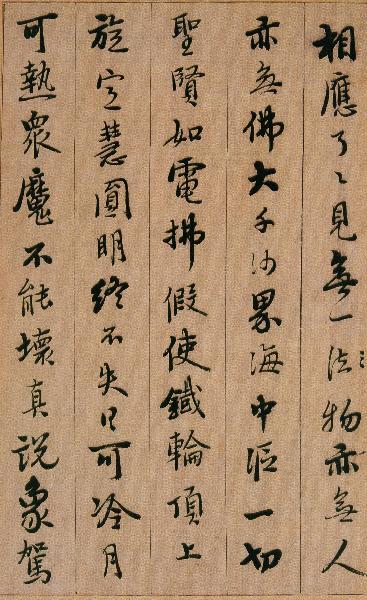 相應了〻見無一法物亦無人
亦無佛大千沙界海中漚一切
聖賢如電拂假使鐵輪頂上
旋定慧圓明終不失日可冷月
可熱衆魔不能壞真說象駕